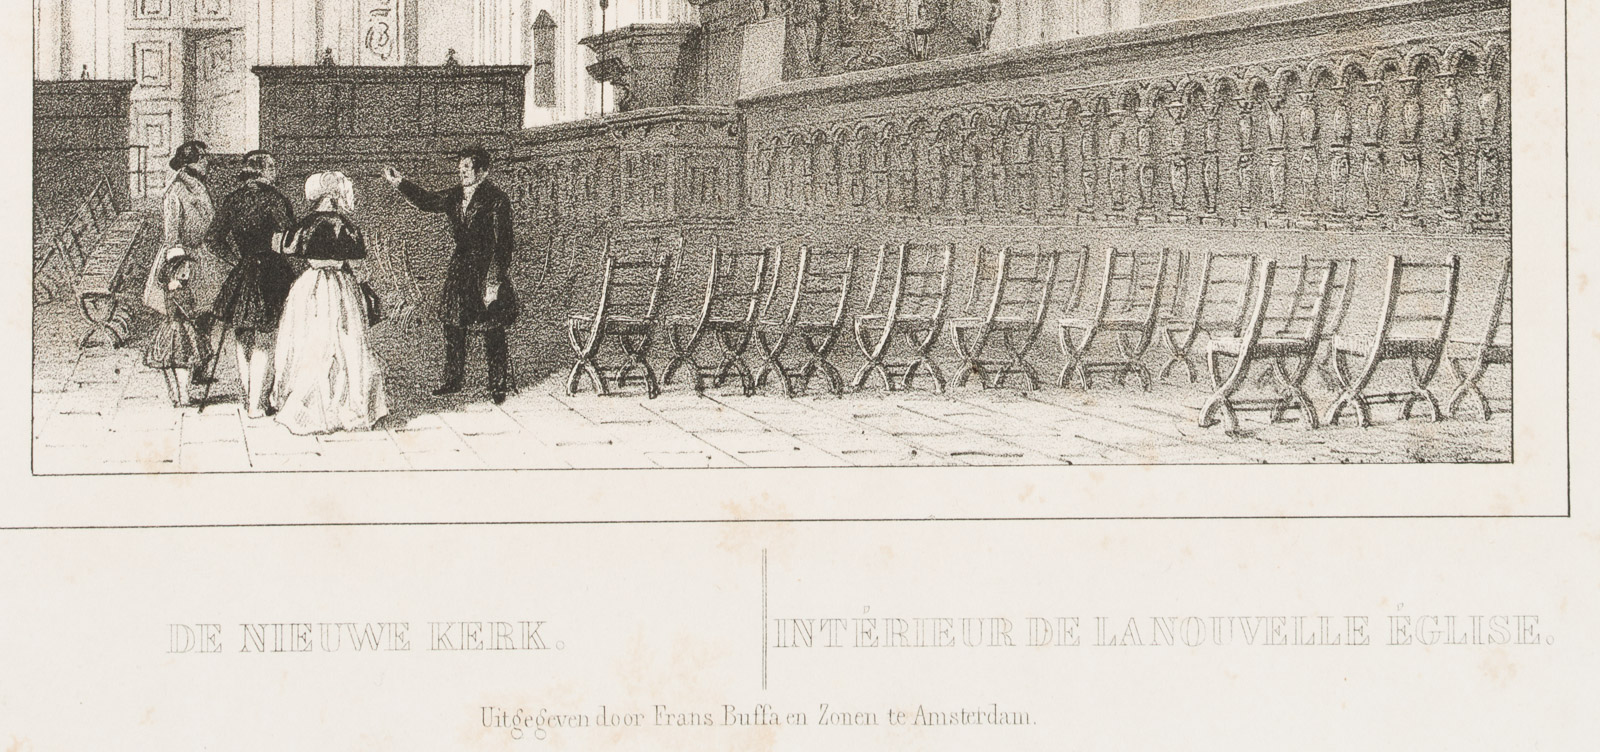 DE NIEUWE KERK.
INTÉRIEUR DE LA NOUVELLE ÉGLISE.
Uitgegeven door Frans Buffa en Zonen te Amsterdam.